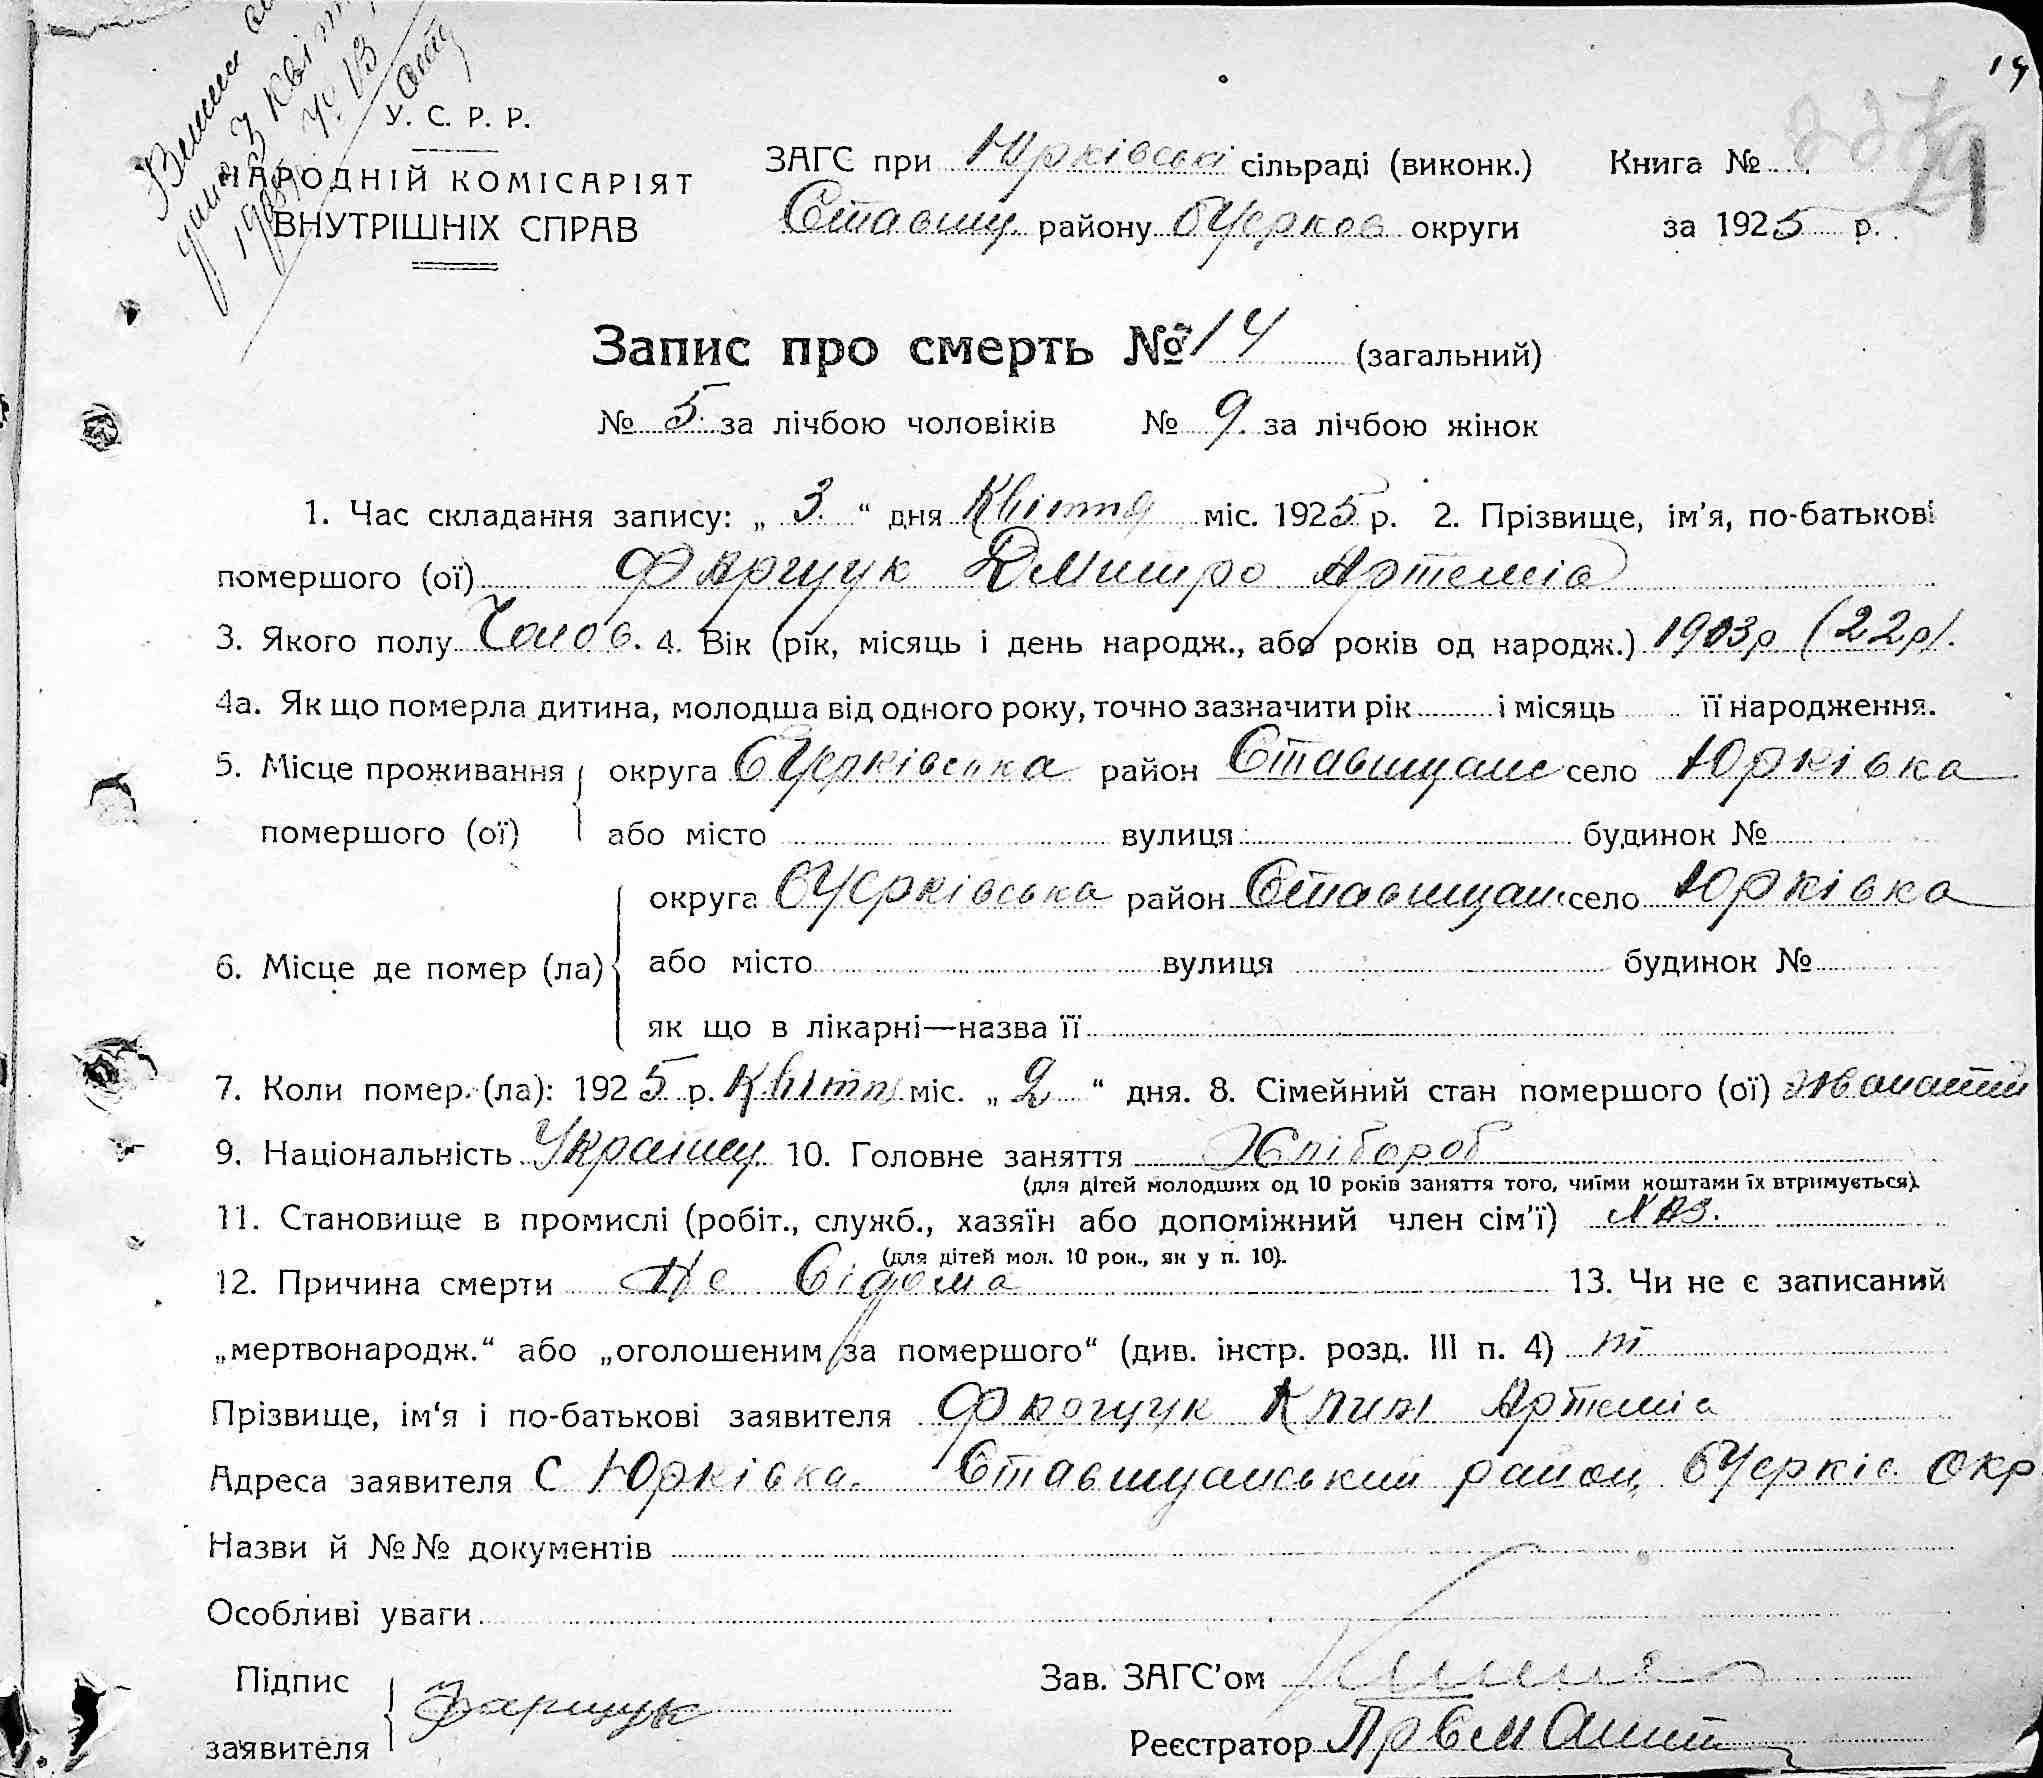 У. С. Р. Р.
НАРОДНІЙ КОМІСАРІЯТ
ВНУТРІШНІХ СПРАВ
ЗАГС при Юрківські сільраді (виконк.) Книга №
Ставищ. району БЦерков округи за 1925 р.
Запис про смерть № 14 (загальний)
№ 5 за лічбою чоловіків № 9. за лічбою жінок
1. Час складання запису: „ 3. “ дня Квітня міс. 1925 р. 2. Прізвище, ім’я, по-батькові
помершого (ої) Фарщук Дмитро Артемів
3. Якого полу Чолов. 4. Вік (рік, місяць і день народж., або років од народж.) 1903р (22р).
4а. Як що померла дитина, молодша від одного року, точно зазначити рік і місяць її народження.
5. Місце проживання помершого (ої) округа БЦерківська район Ставищан село Юрківка
або місто вулиця будинок №
6. Місце де помер (ла) округа БЦерківська район Ставищан село Юрківка
або місто вулиця будинок №
як що в лікарні—назва її
7. Коли помер (ла): 1925 р. Квітня міс. „ 2 “ дня. 8. Сімейний стан помершого (ої)
9. Національність Українц. 10. Головне заняття Хлібороб
(для дітей молодших од 10 років заняття того, чиїми коштами їх втримується).
11. Становище в промислі (робіт., служб., хазяїн або допоміжний член сім’ї) Хаз.
(для дітей мол. 10 рок., як у п. 10).
12. Причина смерти Не Відома 13. Чи не є записаний
„мертвонародж.“ або „оголошеним за помершого“ (див. інстр. розд. III п. 4)
Прізвище, ім‘я і по-батькові заявителя Фарщук Клим Артемів
Адреса заявителя С Юрківка. Ставищанський район, БЦерків. Окр
Назви й №№ документів
Особливі уваги
Підпис заявителя Фарщук
Зав. ЗАГС’ом
Реєстратор